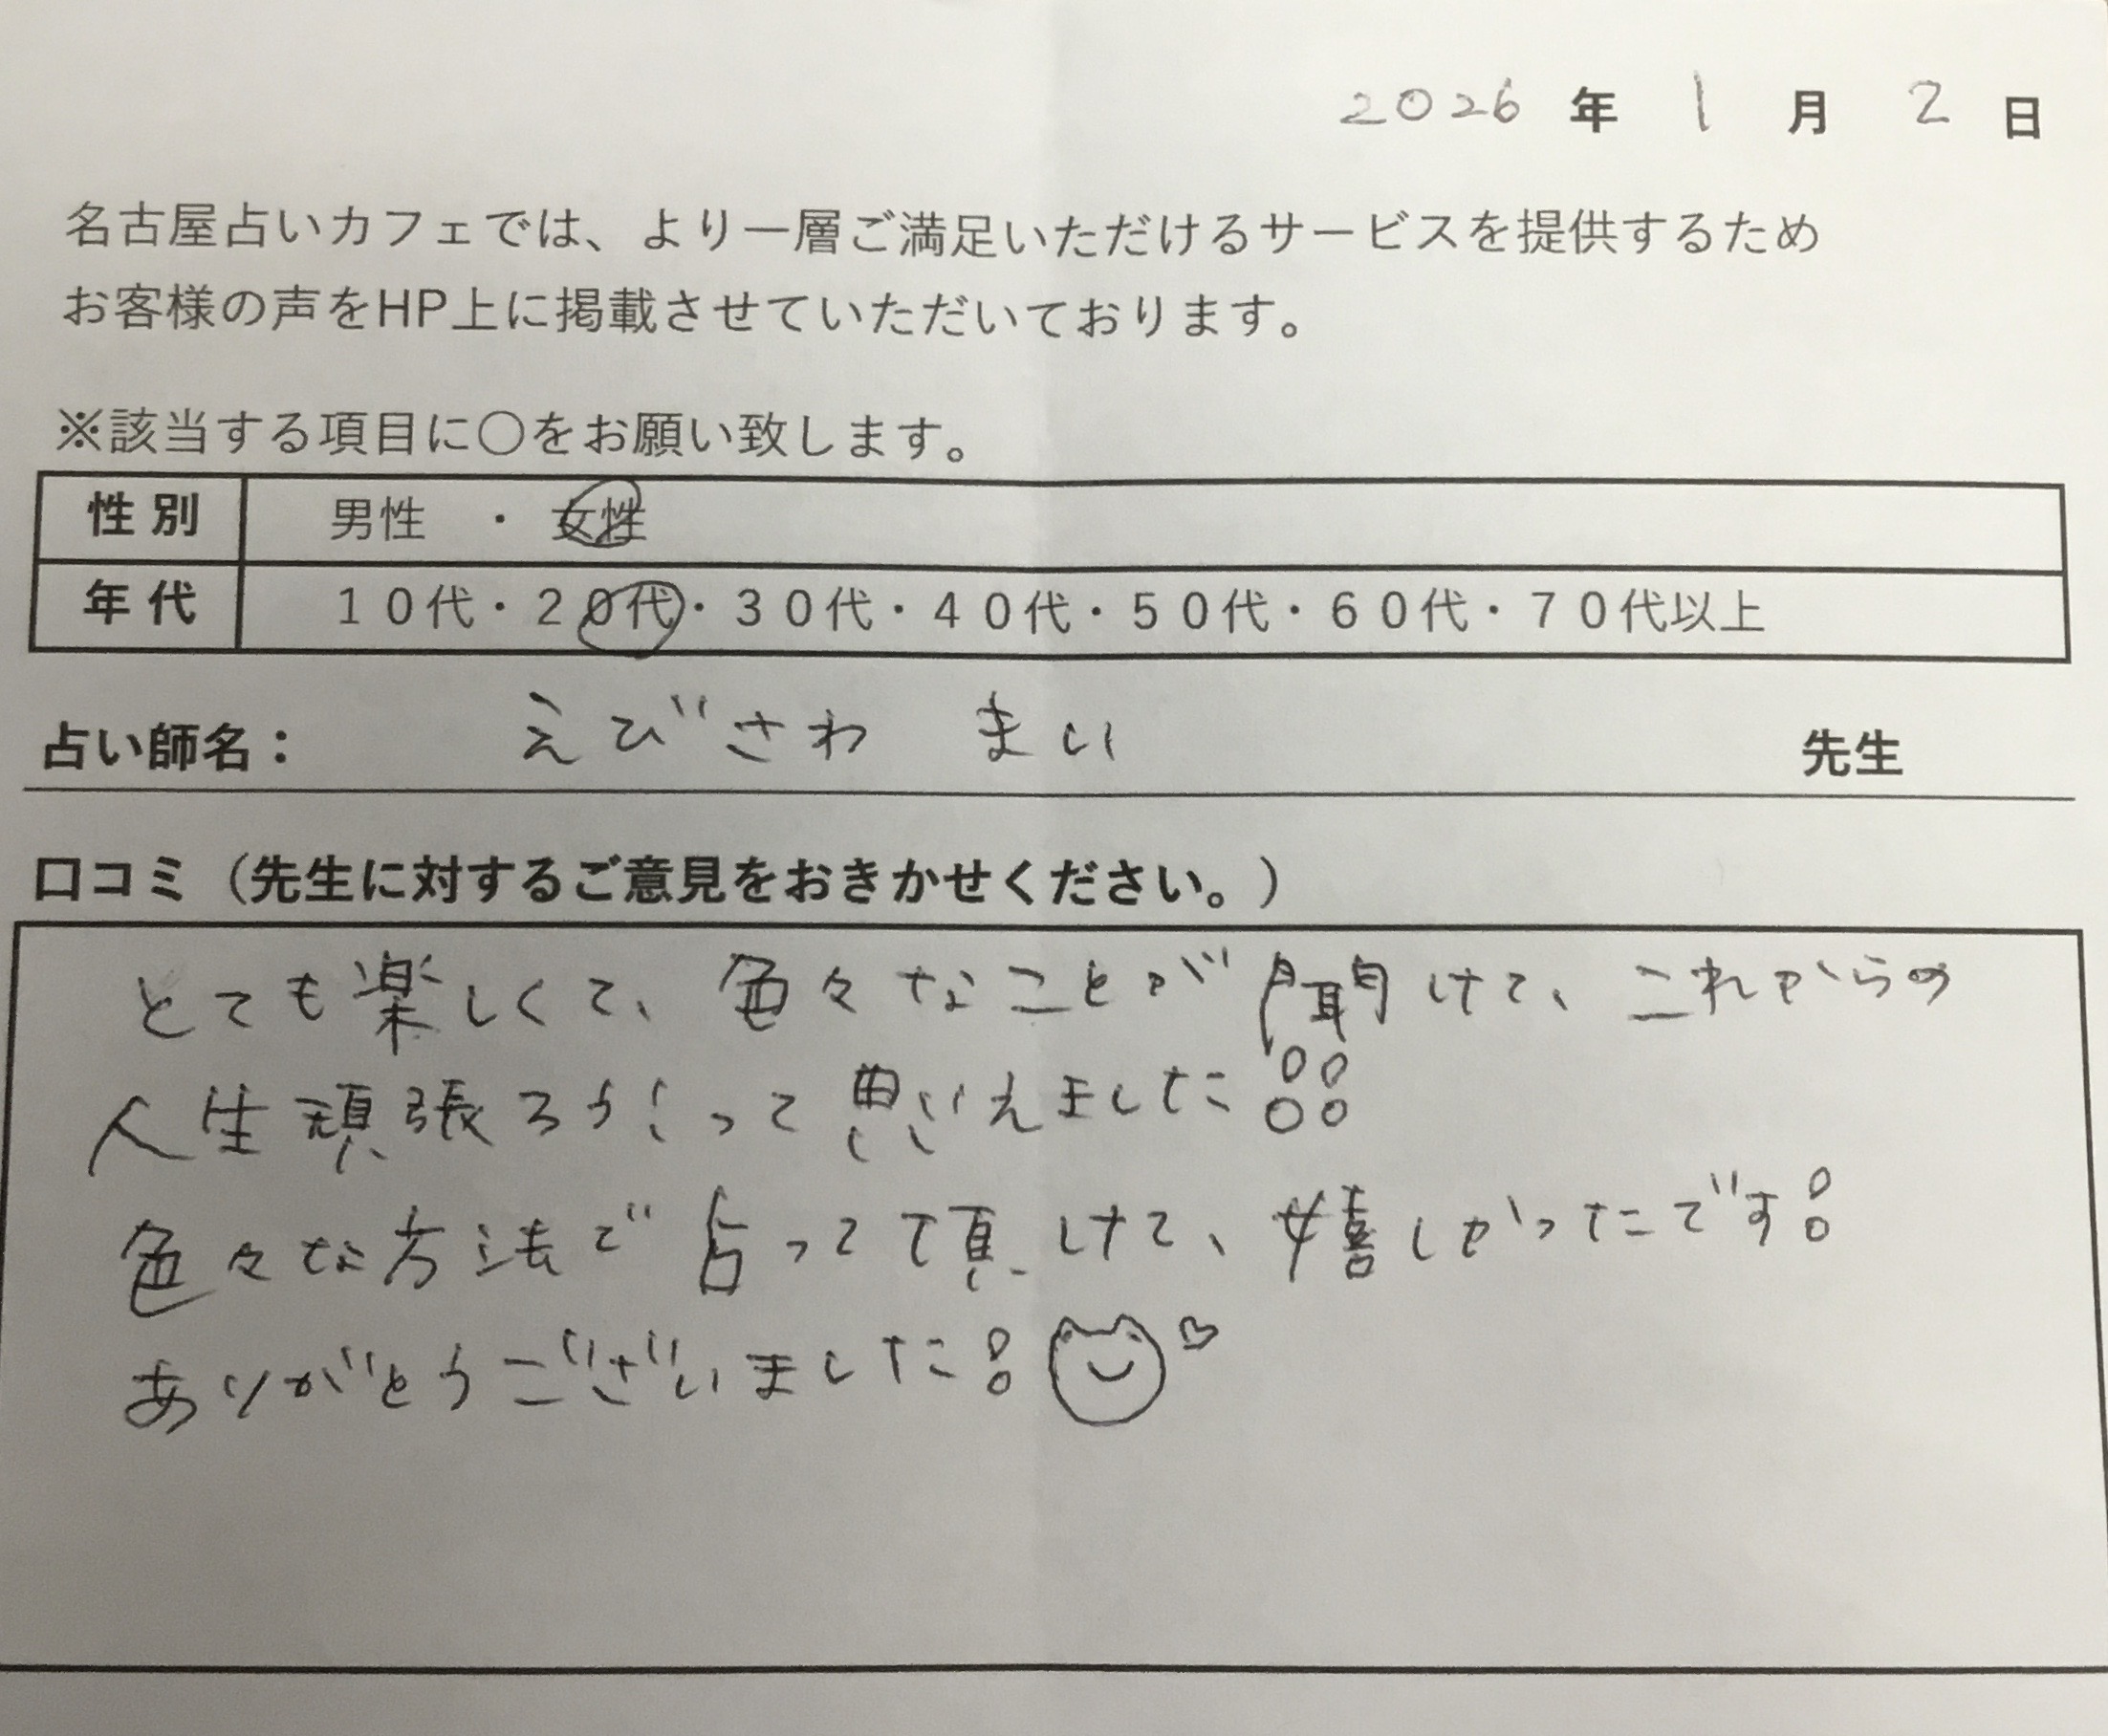 2026 年 1 月 2 日
名古屋占いカフェでは、より一層ご満足いただけるサービスを提供するため
お客様の声をHP上に掲載させていただいております。
※該当する項目に○をお願い致します。
性別 男性 ・ 女性
年代 10代・20代・30代・40代・50代・60代・70代以上
占い師名： えびさわ まい 先生
口コミ（先生に対するご意見をおきかせください。）
とても楽しくて、色々なことが聞けて、これからの
人生頑張ろう！って思いえました!!
色々な方法で占って頂けて、嬉しかったです!
ありがとうございました!